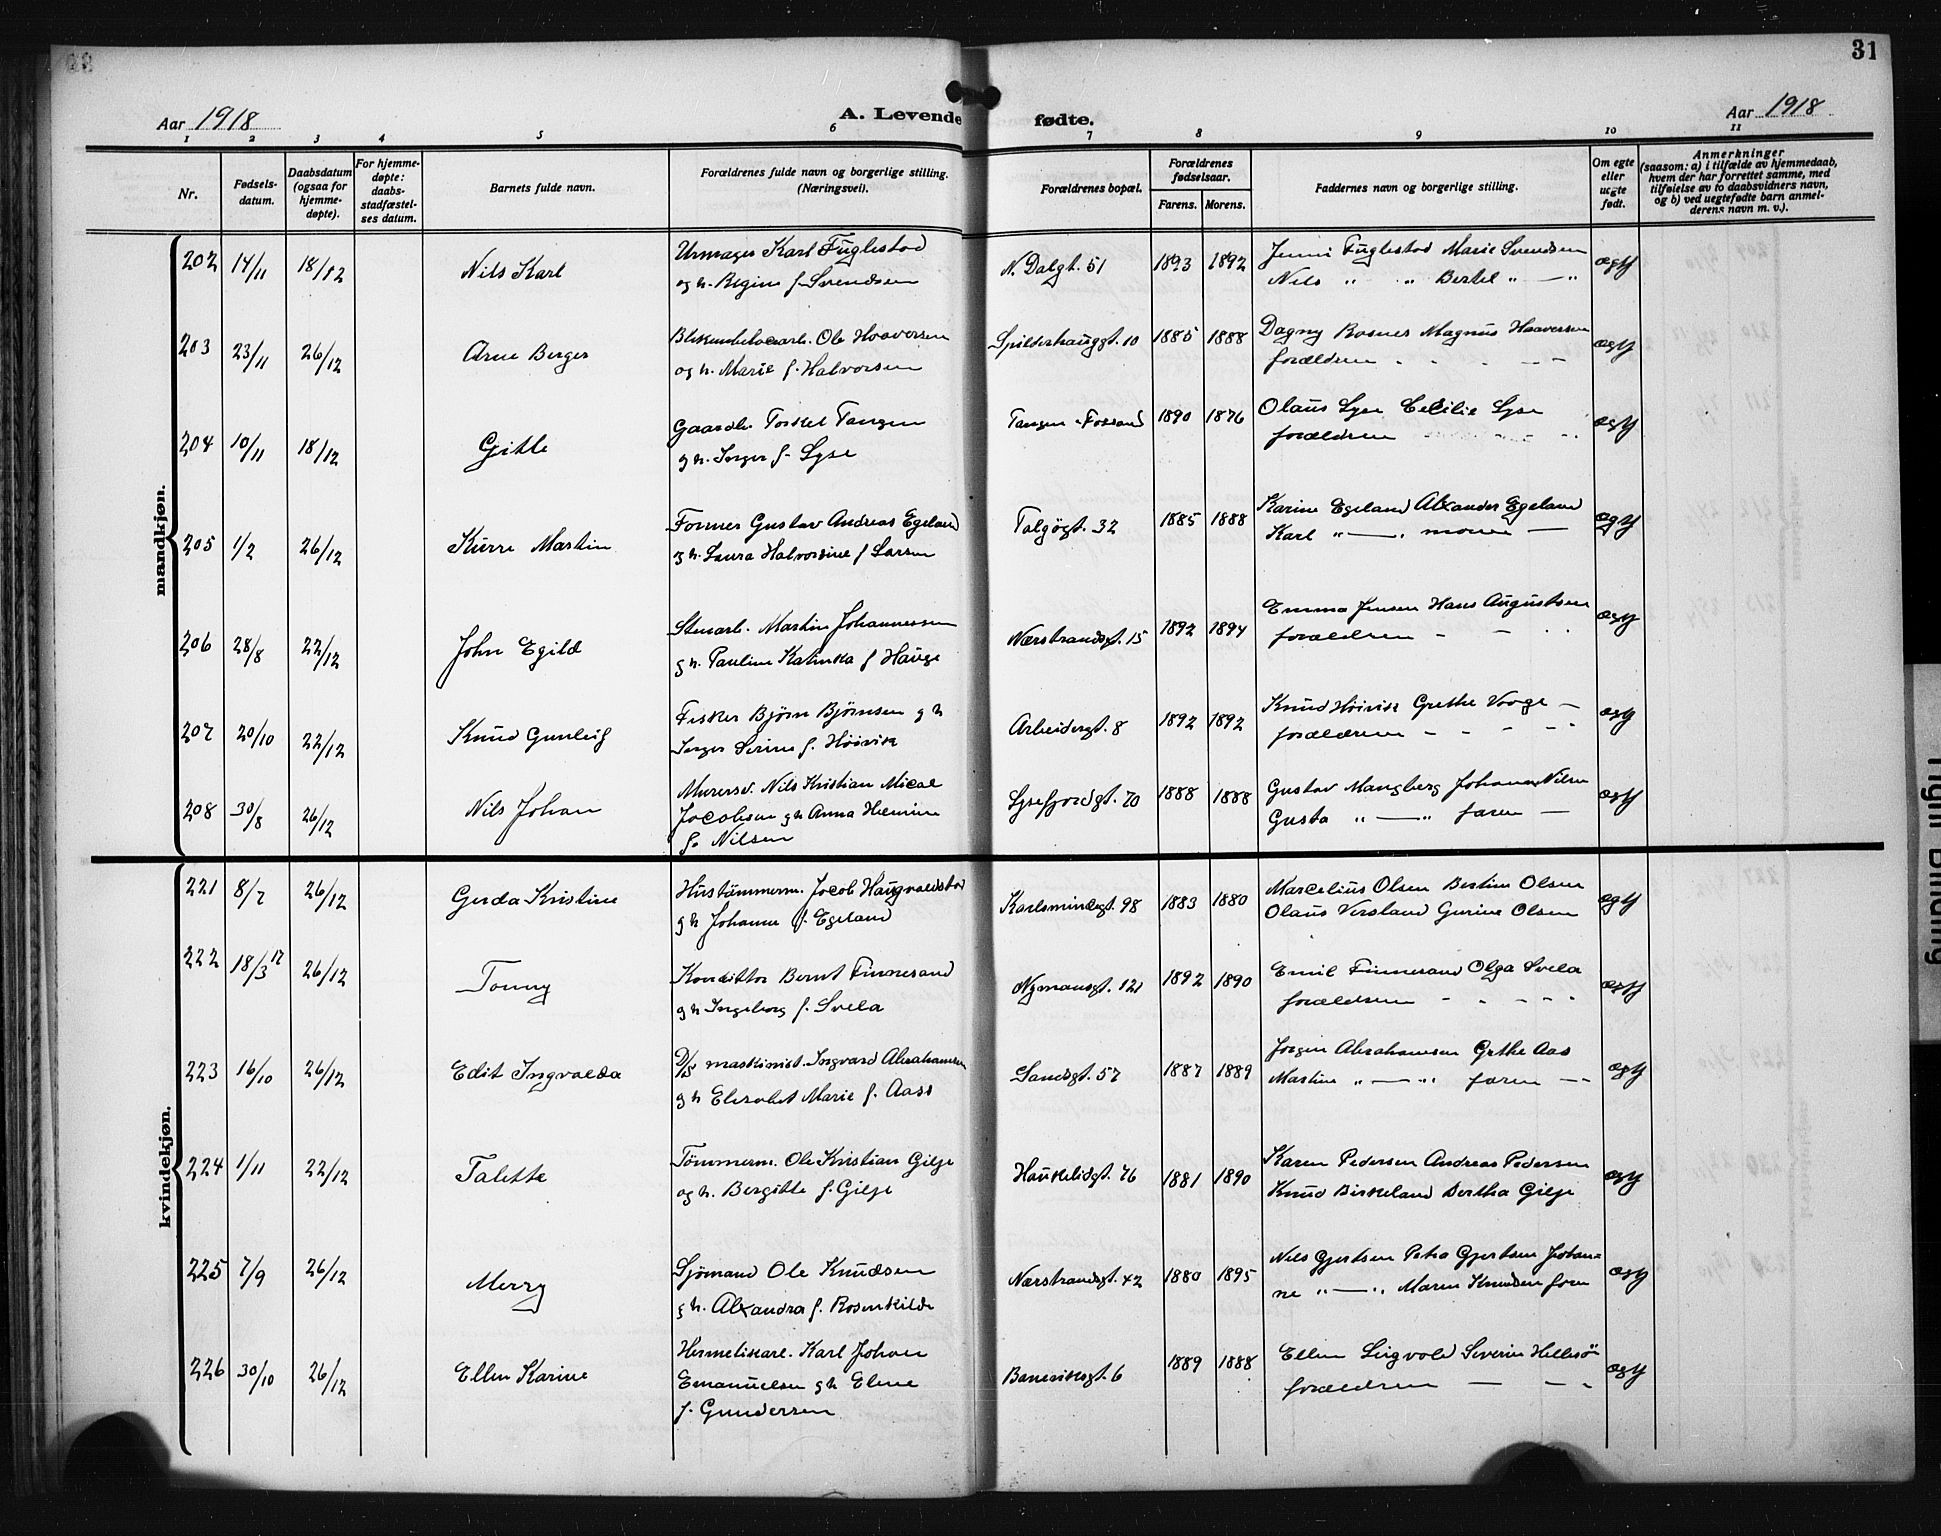 31
Aar 1918
A. Levende fødte.
Aar 1918
1 2 3 4 5 6 7 8 9 10 11
Nr.
Fødselsdatum.
Daabsdatum (ogsaa for hjemmedøpte).
For hjemmedøpte: daabsstadfæstelses datum.
Barnets fulde navn.
Forældrenes fulde navn og borgerlige stilling. (Næringsvei).
Forældrenes bopæl.
Forældrenes fødselsaar.
Farens. Morens.
Faddernes navn og borgerlige stilling.
Om egte eller uegte født.
Anmerkninger
(saasom: a) i tilfælde av hjemmedaab, hvem der har forrettet samme, med tilføielse av to daabsvidners navn, og b) ved uegtefødte barn anmelderens navn m. v.).
mandkjøn.
202 14/11 18/12 Nils Karl
Urmager Karl Fuglestad
og h. Regine f. Svendsen
N. Dalgt. 51 1893 1892
Jenni Fuglestad Marie Svendsen
Nils " " Bertel " — "
ægt
203 23/11 26/12 Arne Berger
Ole Haaversen
og h. Marie f. Halvorsen
Spilderhauggt. 10 1885 1888
Dagny Rosnes Magnus Haaversen
forældrene
ægt
204 10/11 18/12 Gitle
Gaardb. Torkel Tangen
g h. Inger f. Lyse
Tangen Fossand 1890 1876
Olaus Lyse Cecilie Lyse
forældrene
ægt
205 1/2 26/12 Kurre Martin
Former Gustav Andreas Egeland
g h. Laura Halvorsine f Larsen
Talgøgt. 32 1885 1888
Karine Egeland Alexander Egeland
Karl " — " moren —
ægt
206 28/8 22/12 John Egild
Stenarb. Martin Johannessen
g h. Pauline Katinka f Hauge
Nærstrandsgt. 15 1892 1894
Emma Jensen Hans Augustsen
forældrene
ægt
207 20/10 22/12 Knud Gunleif
Fisker Bjørn Bjørnsen g h
Inger Serine f. Høivik
Arbeidergt. 8 1892 1892
Knud Høivik Grethe Vaage —
forældrene
ægt
208 30/8 26/12 Nils Johan
Murersv. Nils Kristian Micael
Jacobsen g h Anna Helmine
f. Nilsen
Lysefjordgt. 20 1888 1888
Gustav Mangberg Johanna Nilsen
Gusta " — " faren —
ægt
kvindekjøn.
221 8/7 26/12 Gerda Kristine
Hustømmerm. Jacob Haugvaldstad
g h Johanne f. Egeland
Karlsmindegt. 98 1883 1880
Marcelius Olsen Bertine Olsen
Olaus Versland Gurine Olsen
ægt
222 18/3 17 26/12 Tonny
Konditor Bernt Finnesand
g h Ingeborg f. Svela
Nymansgt. 121 1892 1890
Emil Finnesand Olga Svela
forældrene
ægt
223 16/10 26/12 Edit Ingvalda
D/S maskinist. Ingvard Abrahamsen
g h Elisabet Marie f. Aass
Sandsgt. 57 1887 1889
Jørgen Abrahamsen Grthe Aas
Martine " — " faren —
ægt
224 1/11 22/12 Talette
Tømmerm. Ole Kristian Gilje
og h. Bergitte f. Gilje
Haukelidgt. 76 1881 1890
Karen Pedersen Andreas Pedersen
Knud Birkeland Bertha Gilje
ægt
225 7/9 26/12 Merry
Sjømand Ole Knudsen
g h. Alexandra f. Rosenkilde
Nærstrandsgt. 42 1880 1895
Nils Gjertsen Petra Gjertsen Johan=
ne " — " Maren Knudsen faren
ægt
226 30/10 26/12 Ellen Karine
Hermetikarb. Karl Johan
Emanuelsen g h Elene
f. Gundersen
Baneviksgt. 6 1889 1888
Ellen Sigvold Severin Hellesø
forældrene
ægt
Digin Bildning